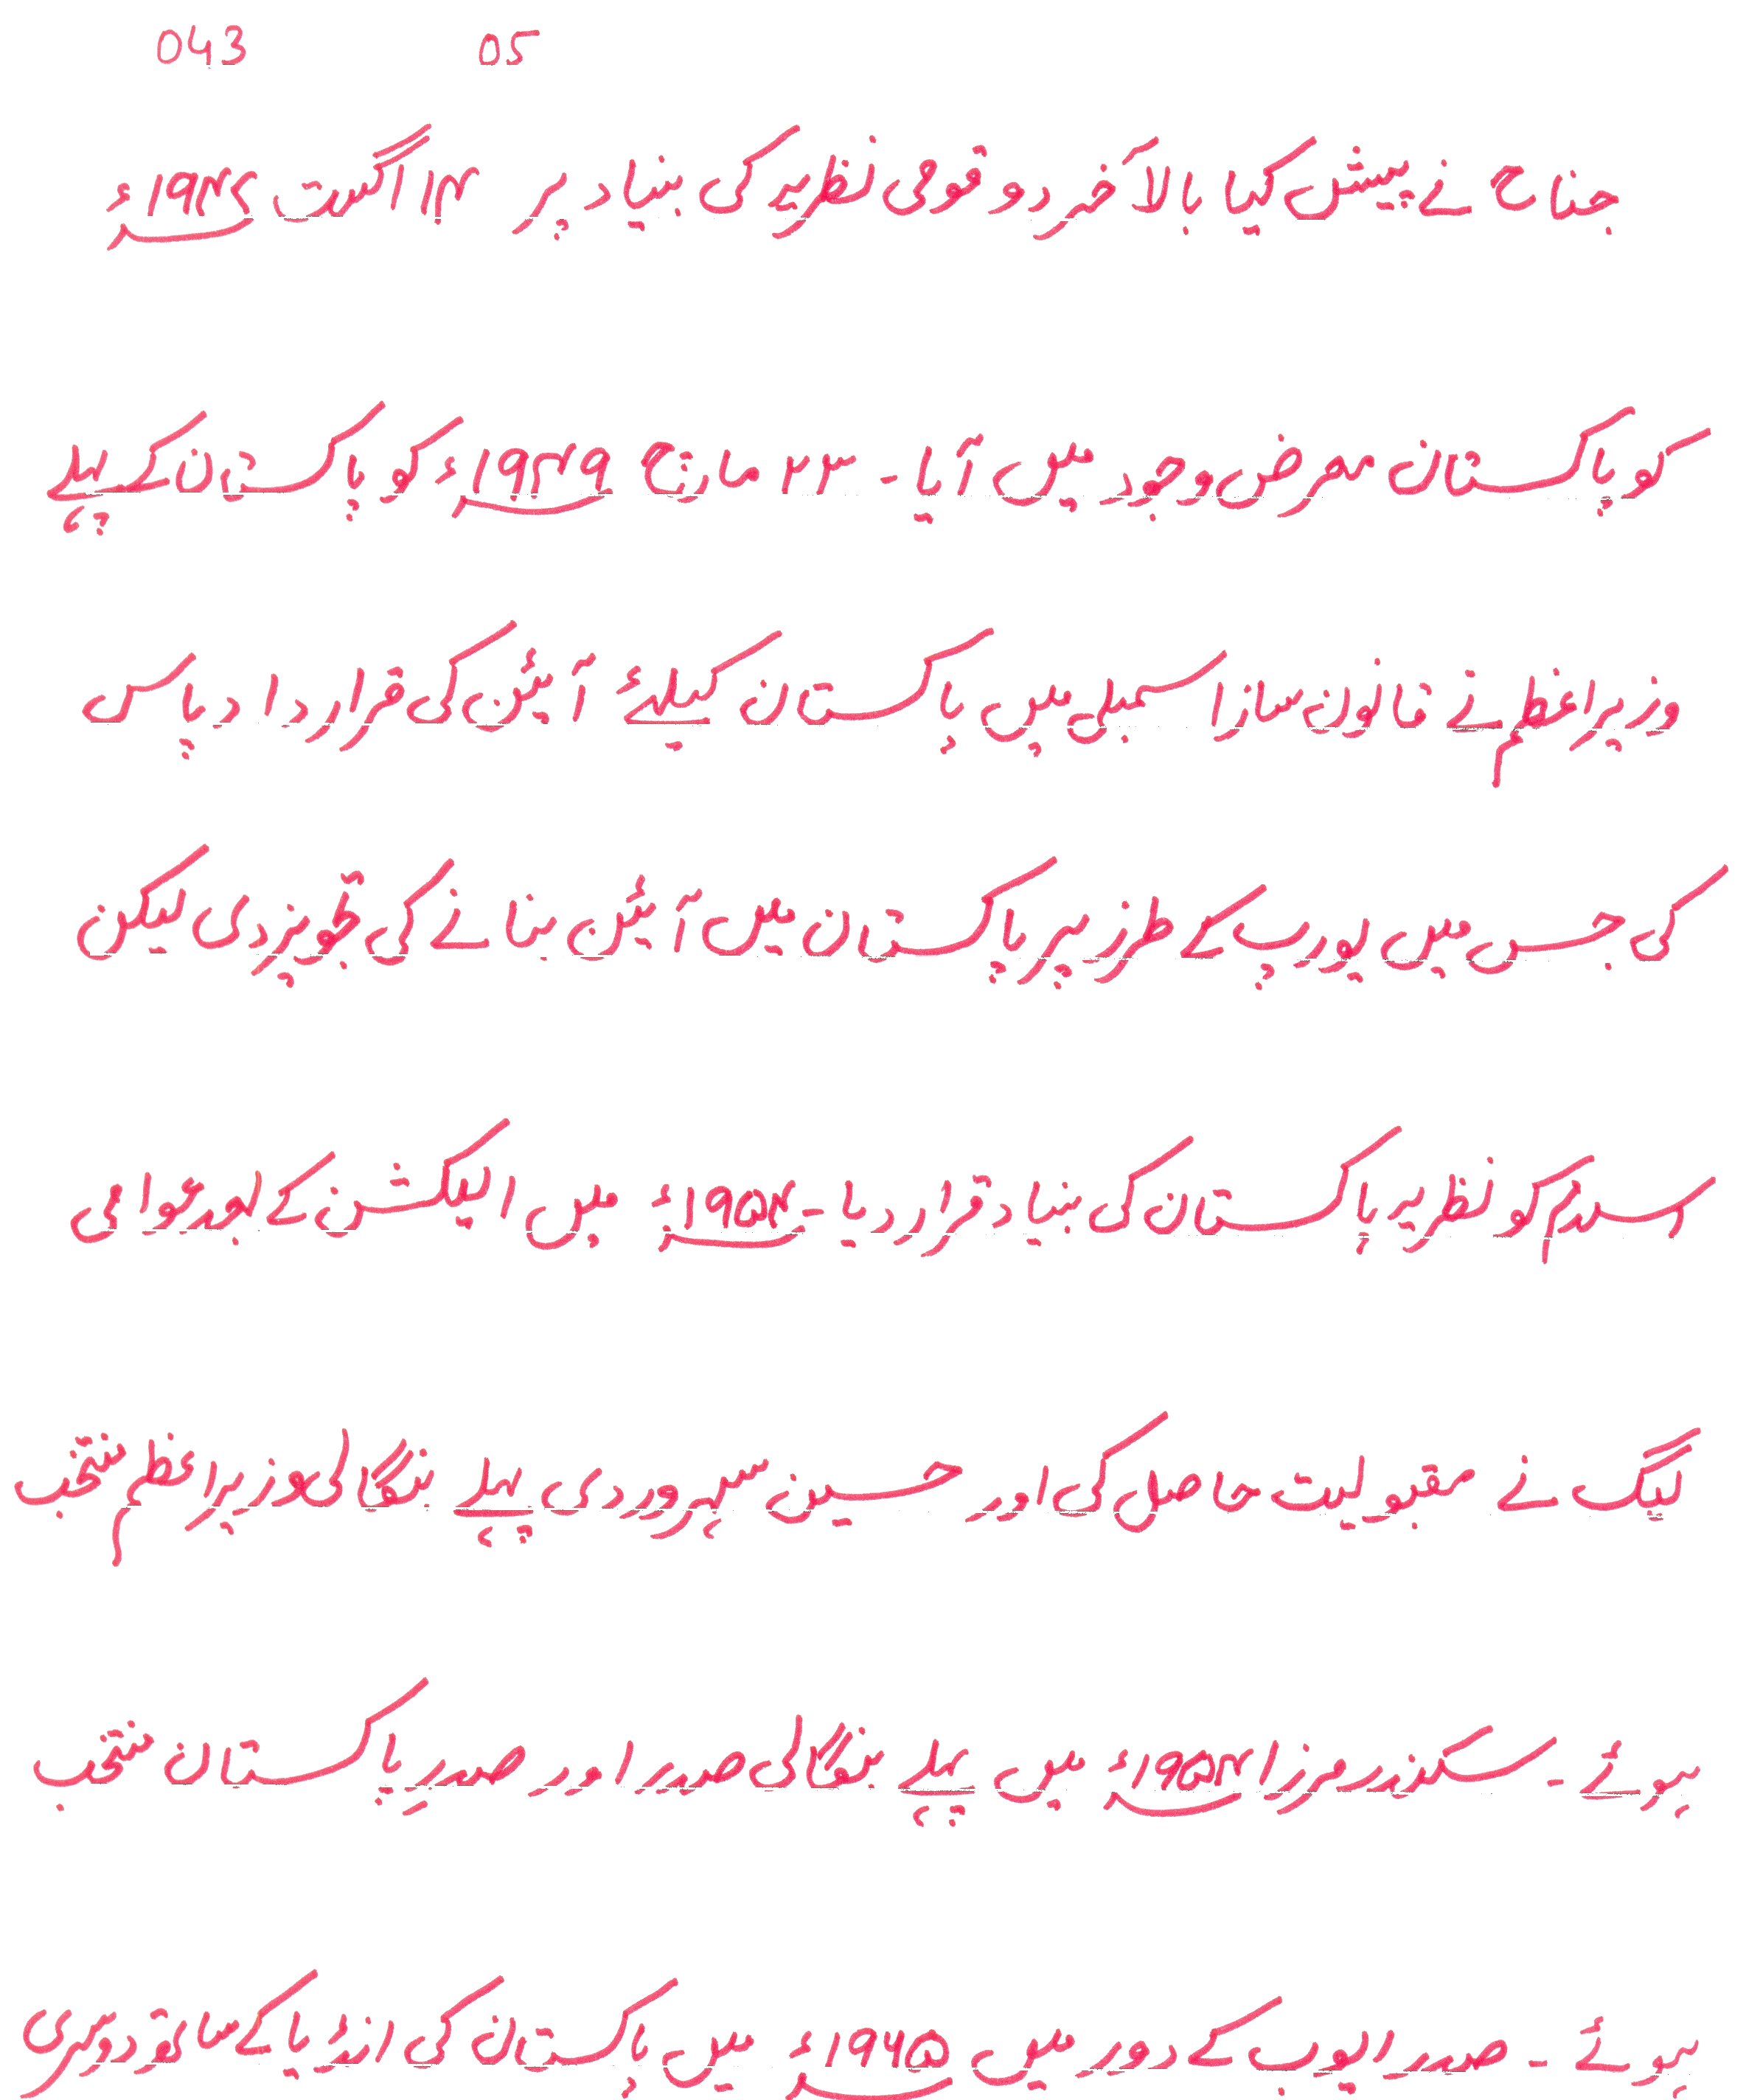 043 05
جناح نے پیش کیا بالآخر دو قومی نظریہ کی بنیاد پر ۱۴ اگست ۱۹۴۷ء
کو پاکستان معرض وجود میں آیا۔ ۲۳ مارچ ۱۹۴۹ء کو پاکستان کے پہلے
وزیراعظم نے قانون ساز اسمبلی میں پاکستان کیلئے آئین کی قرارداد پاس
کی جس میں یورپ کے طرز پر پاکستان میں آئین بنانے کی تجویز دی لیکن
اسلام کو نظریہ پاکستان کی بنیاد قرار دیا۔ ۱۹۵۴ء میں الیکشن کے بعد عوامی
لیگ نے مقبولیت حاصل کی اور حسین سہروردی پہلے بنگالی وزیراعظم منتخب
ہوئے۔ سکندر مرزا ۱۹۵۴ء میں پہلے بنگالی صدر اور صدر پاکستان منتخب
ہوئے۔ صدر ایوب کے دور میں ۱۹۶۵ء میں پاکستان کی انڈیا کے ساتھ دوسری